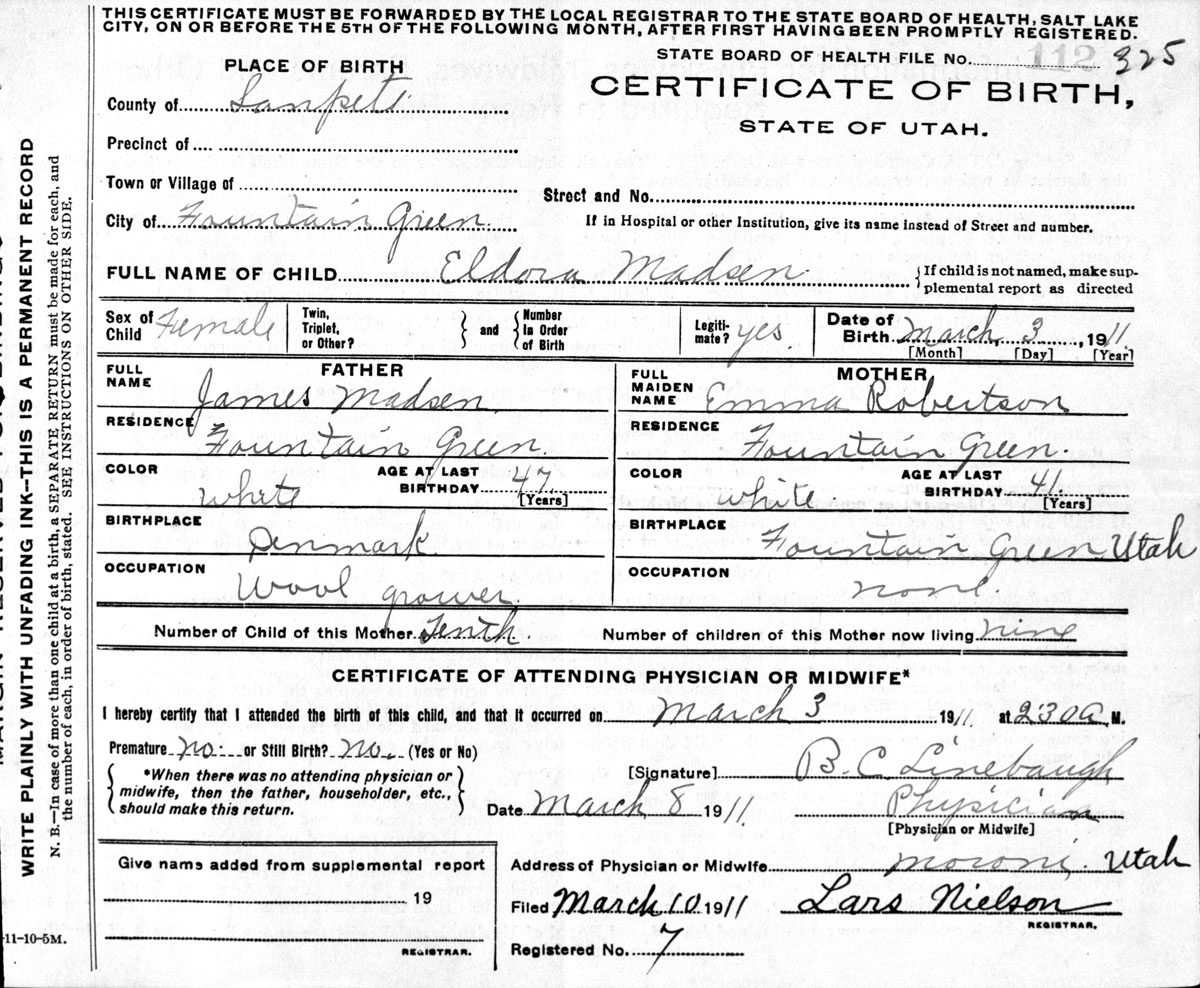 THIS CERTIFICATE MUST BE FORWARDED BY THE LOCAL REGISTRAR TO THE STATE BOARD OF HEALTH, SALT LAKE
CITY, ON OR BEFORE THE 5TH OF THE FOLLOWING MONTH, AFTER FIRST HAVING BEEN PROMPTLY REGISTERED.
STATE BOARD OF HEALTH FILE No. 112 325
PLACE OF BIRTH
CERTIFICATE OF BIRTH,
STATE OF UTAH.
County of Sanpete
Precinct of
Town or Village of
Street and No.
City of Fountain Green
If in Hospital or other Institution, give its name instead of Street and number.
FULL NAME OF CHILD Eldora Madsen
{If child is not named, make sup-
plemental report as directed
Sex of Child Female
Twin, Triplet, or Other? } and { Number in Order of Birth
Legiti-mate? yes.
Date of Birth March 3, 1911
[Month] [Day] [Year]
FATHER
FULL NAME James Madsen.
RESIDENCE Fountain Green.
COLOR White AGE AT LAST BIRTHDAY 47 [Years]
BIRTHPLACE Denmark
OCCUPATION Wool grower
MOTHER
FULL MAIDEN NAME Emma Robertson
RESIDENCE Fountain Green.
COLOR White. AGE AT LAST BIRTHDAY 41. [Years]
BIRTHPLACE Fountain Green Utah
OCCUPATION none
Number of Child of this Mother Tenth. Number of children of this Mother now living nine
CERTIFICATE OF ATTENDING PHYSICIAN OR MIDWIFE*
I hereby certify that I attended the birth of this child, and that it occurred on March 3 1911 at 2:30 A. M.
Premature no. or Still Birth? no. (Yes or No)
{ *When there was no attending physician or
midwife, then the father, householder, etc.,
should make this return. }
[Signature] B. C. Linebaugh
Date March 8 1911 Physician
[Physician or Midwife]
Give name added from supplemental report
19
REGISTRAR.
Address of Physician or Midwife Moroni. Utah
Filed March 10 1911 Lars Nielson
REGISTRAR.
Registered No. 7
WRITE PLAINLY WITH UNFADING INK—THIS IS A PERMANENT RECORD
N. B.—In case of more than one child at a birth, a SEPARATE RETURN must be made for each, and
the number of each, in order of birth, stated. SEE INSTRUCTIONS ON OTHER SIDE.
-11-10-5M.